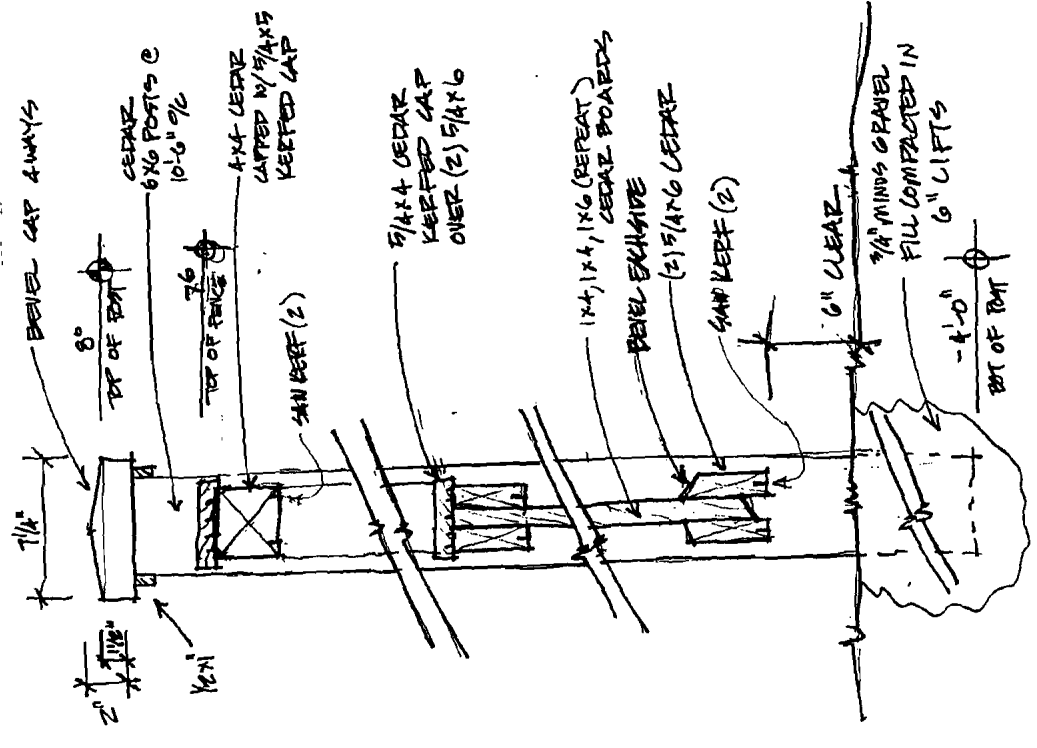 BEVEL CAP 4WAYS
7 1/4"
2"
1 1/2"
1/2x1"
8⁰
TOP OF POST
CEDAR
6X6 POSTS @
10'-6" O/C
7⁶
TOP OF FENCE
4X4 CEDAR
CAPPED W/ 5/4X5
KERFED CAP
SAW KERF (2)
5/4X4 CEDAR
KERFED CAP
OVER (2) 5/4X6
1X4, 1X4, 1X6 (REPEAT)
CEDAR BOARDS
BEVEL EACH SIDE
(2) 5/4X6 CEDAR
SAW KERF (2)
6" CLEAR
3/4" MINUS GRAVEL
FILL COMPACTED IN
6" LIFTS
-4'-0"
BOT OF POST